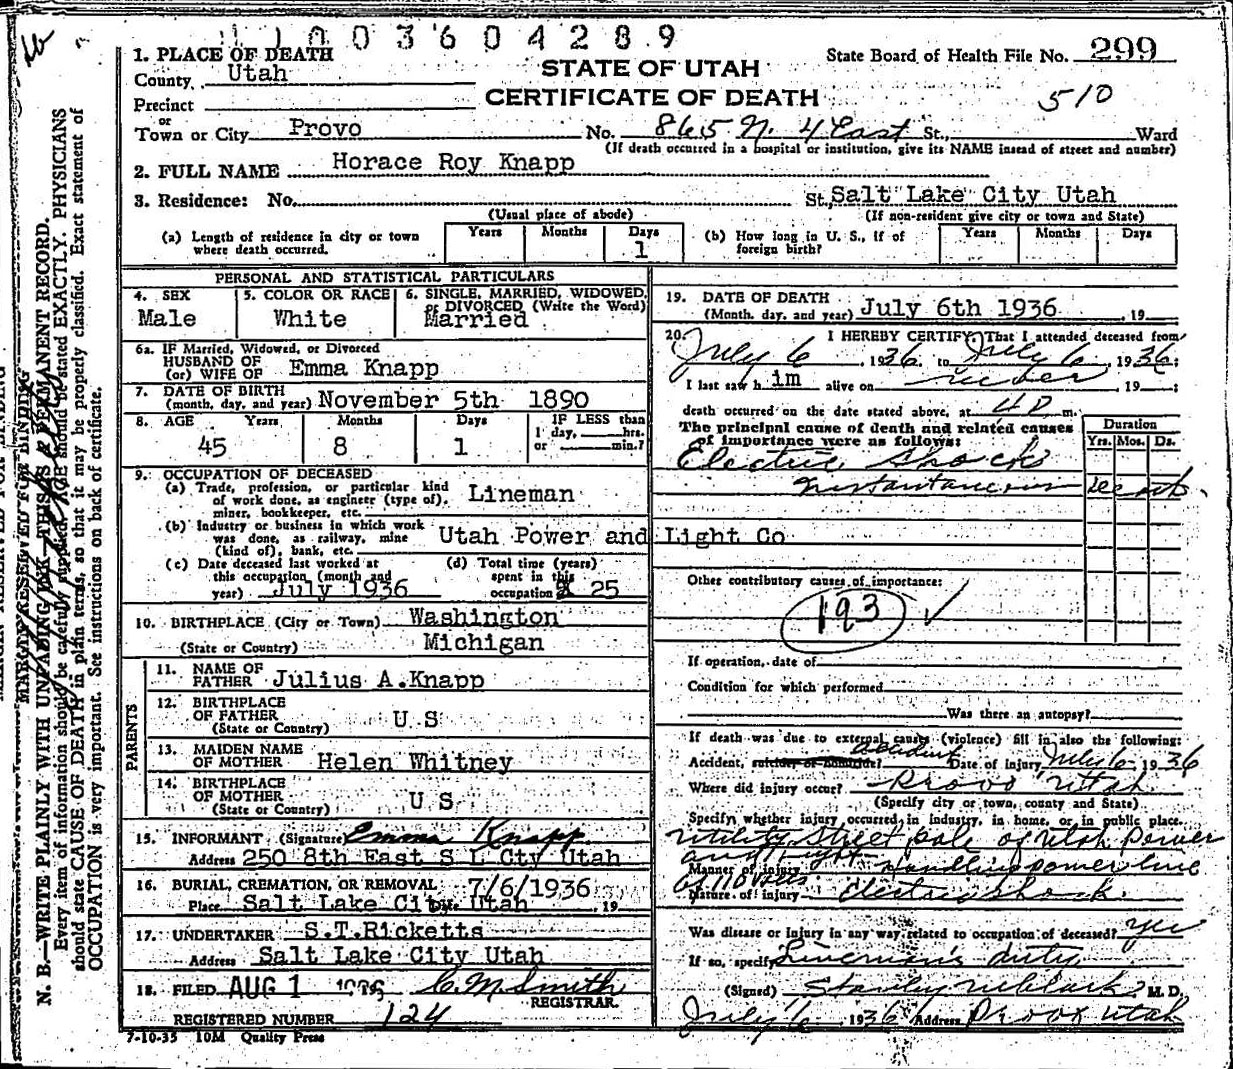 11003604289
1. PLACE OF DEATH
County Utah
STATE OF UTAH
State Board of Health File No. 299
CERTIFICATE OF DEATH
510
Precinct
or
Town or City Provo No. 865 N. 4 East St., Ward
(If death occurred in a hospital or institution, give its NAME insead of street and number)
2. FULL NAME Horace Roy Knapp
3. Residence: No. St. Salt Lake City Utah
(Usual place of abode)
(If non-resident give city or town and State)
(a) Length of residence in city or town where death occurred. Years Months Days 1
(b) How long in U. S., if of foreign birth? Years Months Days
PERSONAL AND STATISTICAL PARTICULARS
4. SEX Male
5. COLOR OR RACE White
6. SINGLE, MARRIED, WIDOWED, or DIVORCED (Write the Word) Married
6a. IF Married, Widowed, or Divorced
HUSBAND OF
(or) WIFE OF Emma Knapp
7. DATE OF BIRTH
(month, day, and year) November 5th 1890
8. AGE Years Months Days IF LESS than
45 8 1
1 day, hrs.
or min.?
9. OCCUPATION OF DECEASED
(a) Trade, profession, or particular kind
of work done, as engineer (type of), Lineman
miner, bookkeeper, etc.
(b) Industry or business in which work
was done, as railway, mine Utah Power and Light Co
(kind of), bank, etc.
(c) Date deceased last worked at
this occupation (month and
year) July 1936
(d) Total time (years)
spent in this
occupation 25
10. BIRTHPLACE (City or Town) Washington
(State or Country) Michigan
PARENTS
11. NAME OF
FATHER Julius A.Knapp
12. BIRTHPLACE
OF FATHER U S
(State or Country)
13. MAIDEN NAME
OF MOTHER Helen Whitney
14. BIRTHPLACE
OF MOTHER U S
(State or Country)
15. INFORMANT (Signature) Emma Knapp
Address 250 8th East S L Cty Utah
16. BURIAL, CREMATION, OR REMOVAL 7/6/1936
Place Salt Lake City Utah , 19
17. UNDERTAKER S.T.Ricketts
Address Salt Lake City Utah
18. FILED AUG 1 1936 C. M. Smith
REGISTRAR.
REGISTERED NUMBER 124
7-10-35 10M Quality Press
19. DATE OF DEATH
(Month, day, and year) July 6th 1936 , 19
20. I HEREBY CERTIFY, That I attended deceased from
July 6, 1936, to July 6, 1936;
I last saw h im alive on 19 ;
death occurred on the date stated above, at m.
The principal cause of death and related causes
of importance were as follows:
Duration
Yrs. Mos. Ds.
Electric Shock
Instantaneous Death
Other contributory causes of importance:
193
If operation, date of
Condition for which performed
Was there an autopsy?
If death was due to external causes (violence) fill in also the following:
accident
Accident, suicide or homicide? Date of injury July 6 1936
Where did injury occur? Provo Utah
(Specify city or town, county and State)
Specify whether injury occurred in industry, in home, or in public place.
utility street pole of Utah Power
and Light
Manner of injury Handling power line
Nature of injury electric shock
Was disease or injury in any way related to occupation of deceased? yes
If so, specify Lineman's duty
(Signed) Stanley M. Clark M. D.
July 6, 1936 Address Provo Utah
N. B.—WRITE PLAINLY WITH UNFADING INK—THIS IS A PERMANENT RECORD.
Every item of information should be carefully supplied. AGE should be stated EXACTLY. PHYSICIANS
should state CAUSE OF DEATH in plain terms, so that it may be properly classified. Exact statement of
OCCUPATION is very important. See instructions on back of certificate.
MARGIN RESERVED FOR BINDING